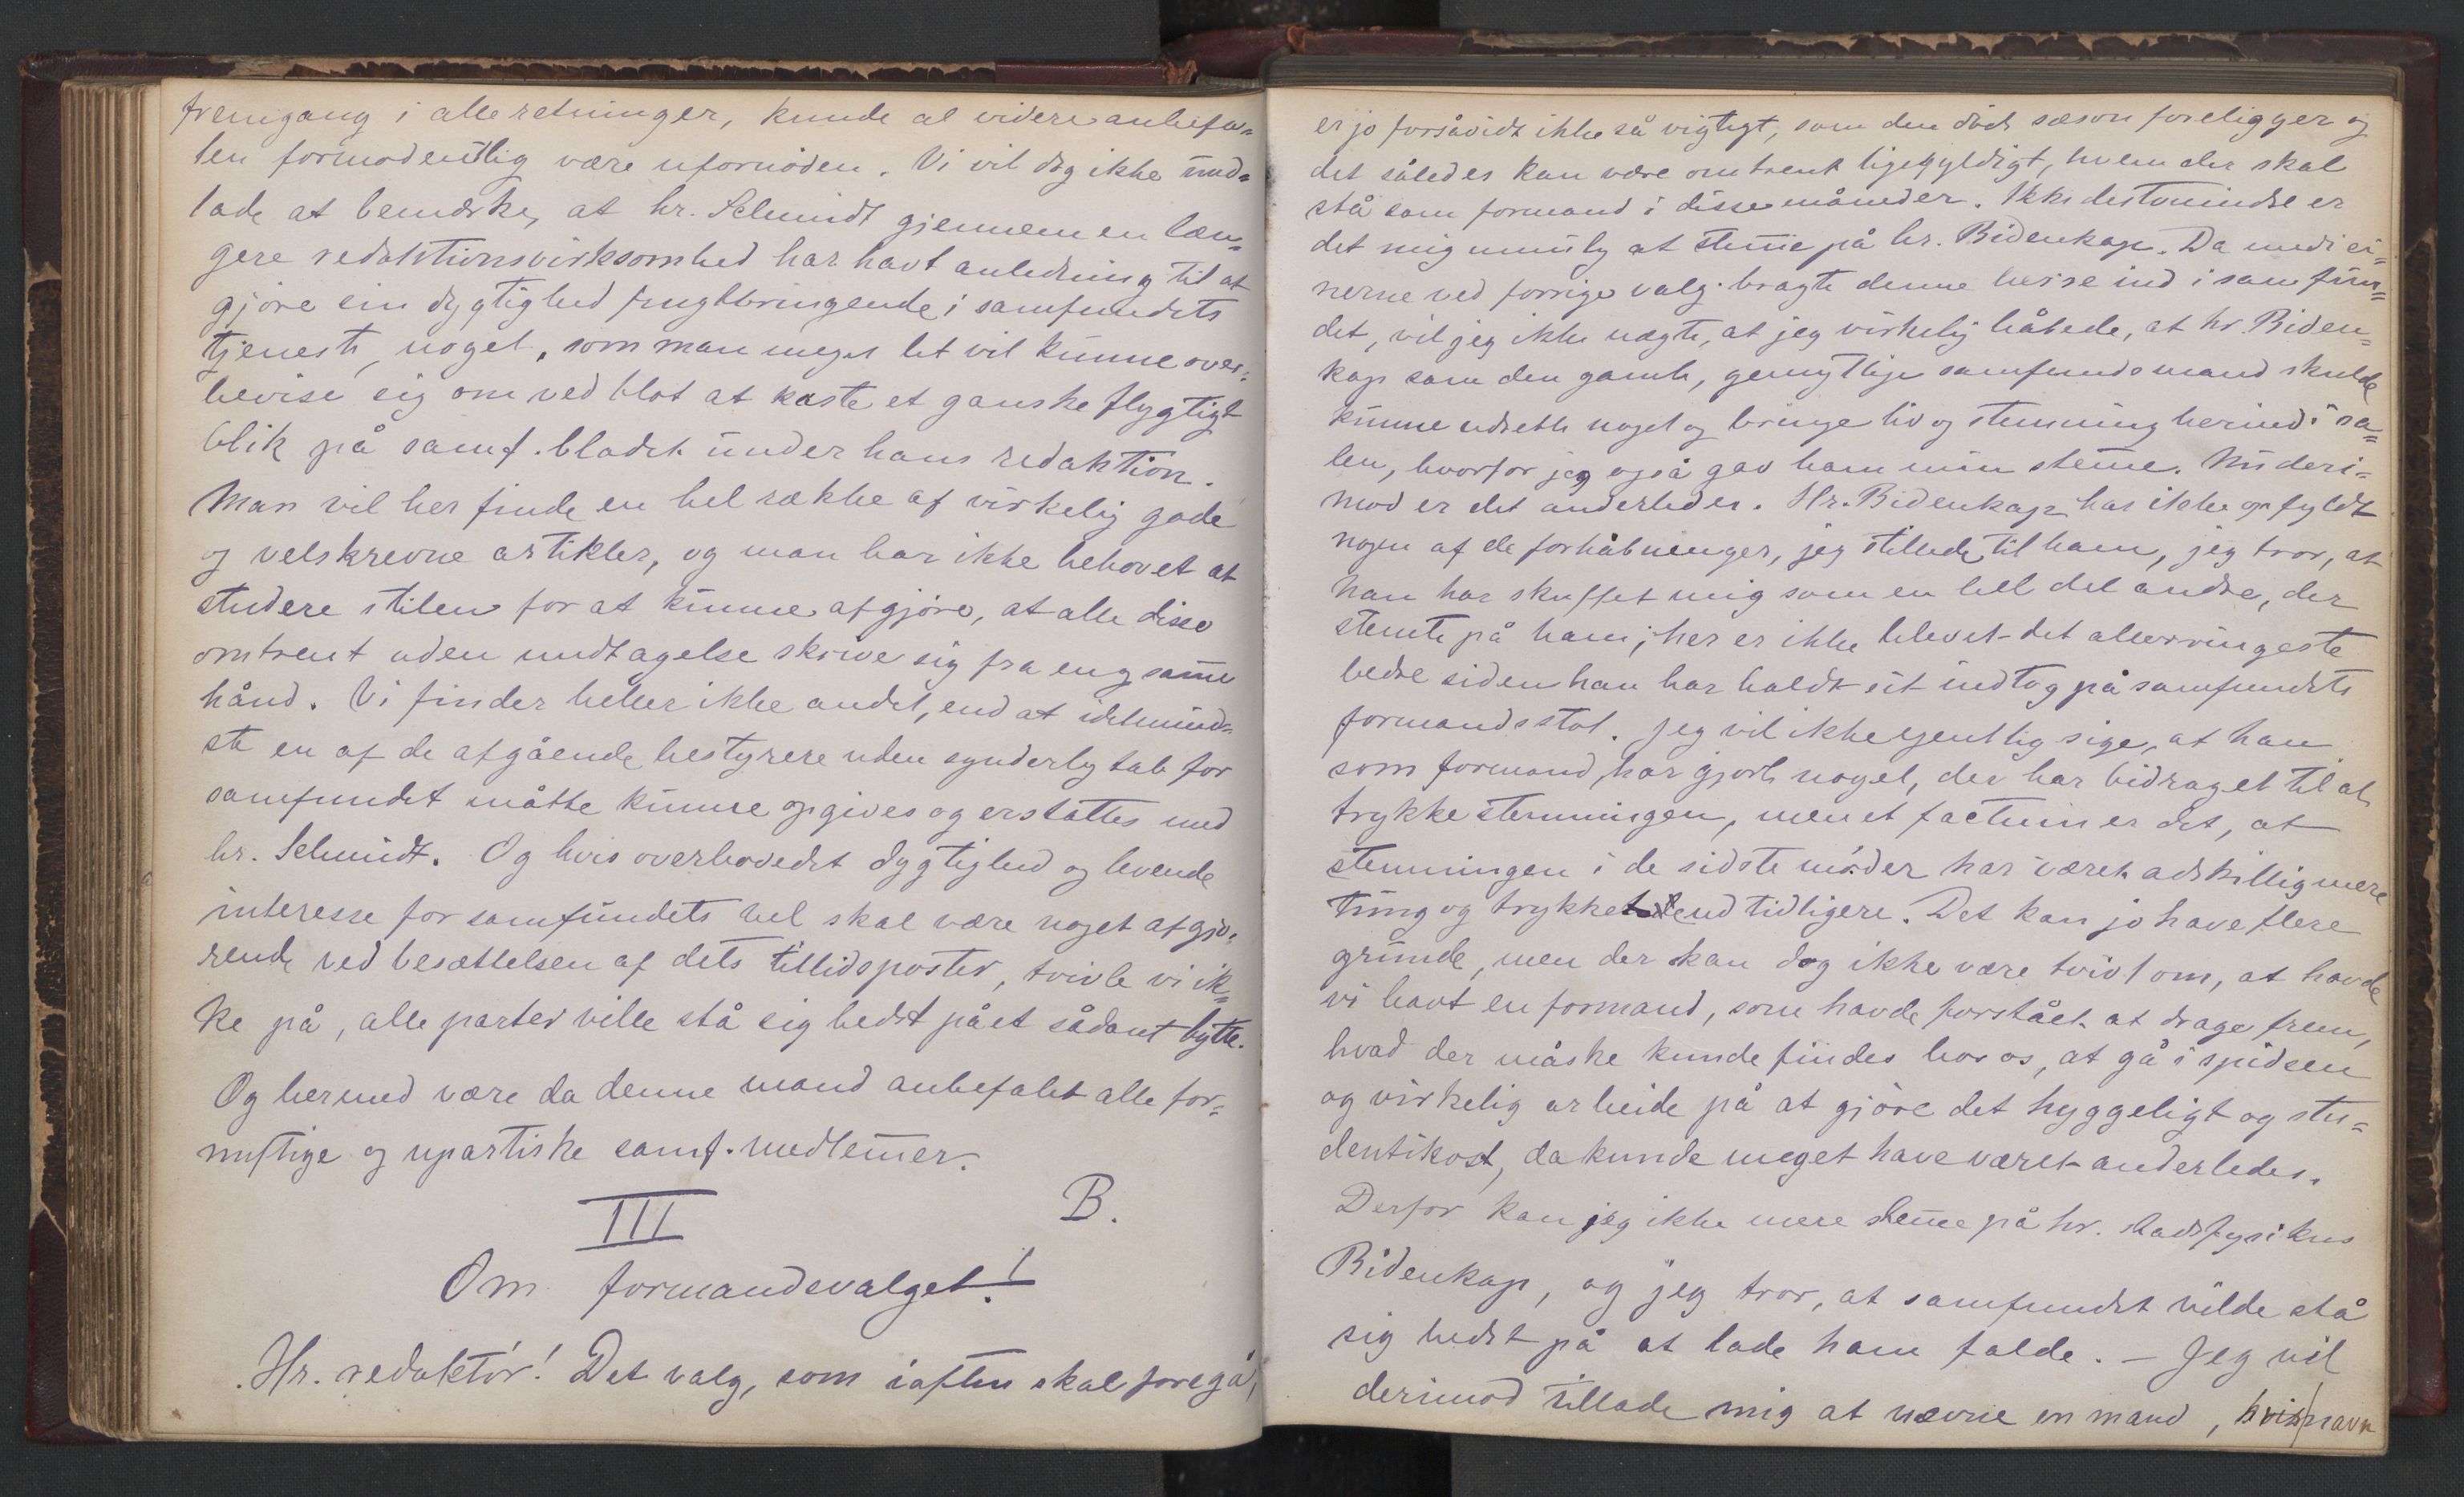 fremgang i alle retninger, kunde al videre anbefa-
len formodentlig være ufornöden. Vi vil dog ikke und-
lade at bemærke, at hr. Schmidt gjennem en læn-
gere redaktionsvirksomhed har havt anledning til at
gjöre sin dygtighed frugtbringende i samfundets
tjeneste, noget, som man meget let vil kunne over-
bevise sig om ved blot at kaste et ganske flygtigt
blik på samf.bladet under hans redaktion.
Man vil her finde en hel række af virkelig gode
og velskrevne artikler, og man har ikke behovet at
studere stilen for at kunne afgjöre, at alle disse
omtrent uden undtagelse skrive sig fra en og samme
hånd. Vi finder heller ikke andet, end at idetmind-
ste en af de afgående bestyrere uden synderlig tab for
samfundet måtte kunne opgives og erstattes med
hr. Schmidt. Og hvis overhovedet dygtighed og levende
interesse for samfundets vel skal være noget afgjö-
rende ved besættelsen af dets tillidsposter, tvivle vi ik-
ke på, alle parter ville stå sig bedst på et sådant bytte.
Og hermed være da denne mand anbefalet alle for-
nuftige og upartiske samf.medlemer.
B.
III
Om formandsvalget!
Hr. redaktör! Det valg, som iaften skal foregå,
er jo forsåvidt ikke så vigtigt, som den död sæson foreligger og
det således kan være omtrent ligegyldigt, hvem der skal
stå som formand i disse måneder. Ikke destomindre er
det mig umulig at stemme på hr. Bidenkap. Da medici-
nerne ved forrige valg bragte denne herre ind i samfun-
det, vil jeg ikke nægte, at jeg virkelig håbede, at hr Biden-
kap som den gamle, gemytlige samfundsmand skulde
kunne udrette noget og bringe liv og stemning herind i sa-
len, hvorfor jeg også gav ham min stemme. Nu deri-
mod er det anderledes. Hr. Bidenkap har ikke opfyldt
nogen af de forhåbninger, jeg stillede til ham, jeg tror, at
han har skuffet mig som en hel del andre, der
stemte på ham; her er ikke blevet det allerringeste
bedre siden han har holdt sit indtog på samfundets
formandsstol. Jeg vil ikke egentlig sige, at han
som formand har gjort noget, der har bidraget til at
trykke stemningen, men et factum er det, at
stemningen i de sidste möder har været adskillig mere
tung og trykket end tidligere. Det kan jo have flere
grunde, men der kan dog ikke være tvivl om, at havde
vi havt en formand, som havde forstået at drage frem,
hvad der måske kunde findes hos os, at gå i spidsen
og virkelig arbeide på at gjöre det hyggeligt og stu-
dentikost, da kunde meget have været anderledes.
Derfor kan jeg ikke mere stemme på hr. stadsfysikus
Bidenkap, og jeg tror, at samfundet vilde stå
sig bedst på at lade ham falde. – Jeg vil
derimod tillade mig at nævne en mand, hvis navn